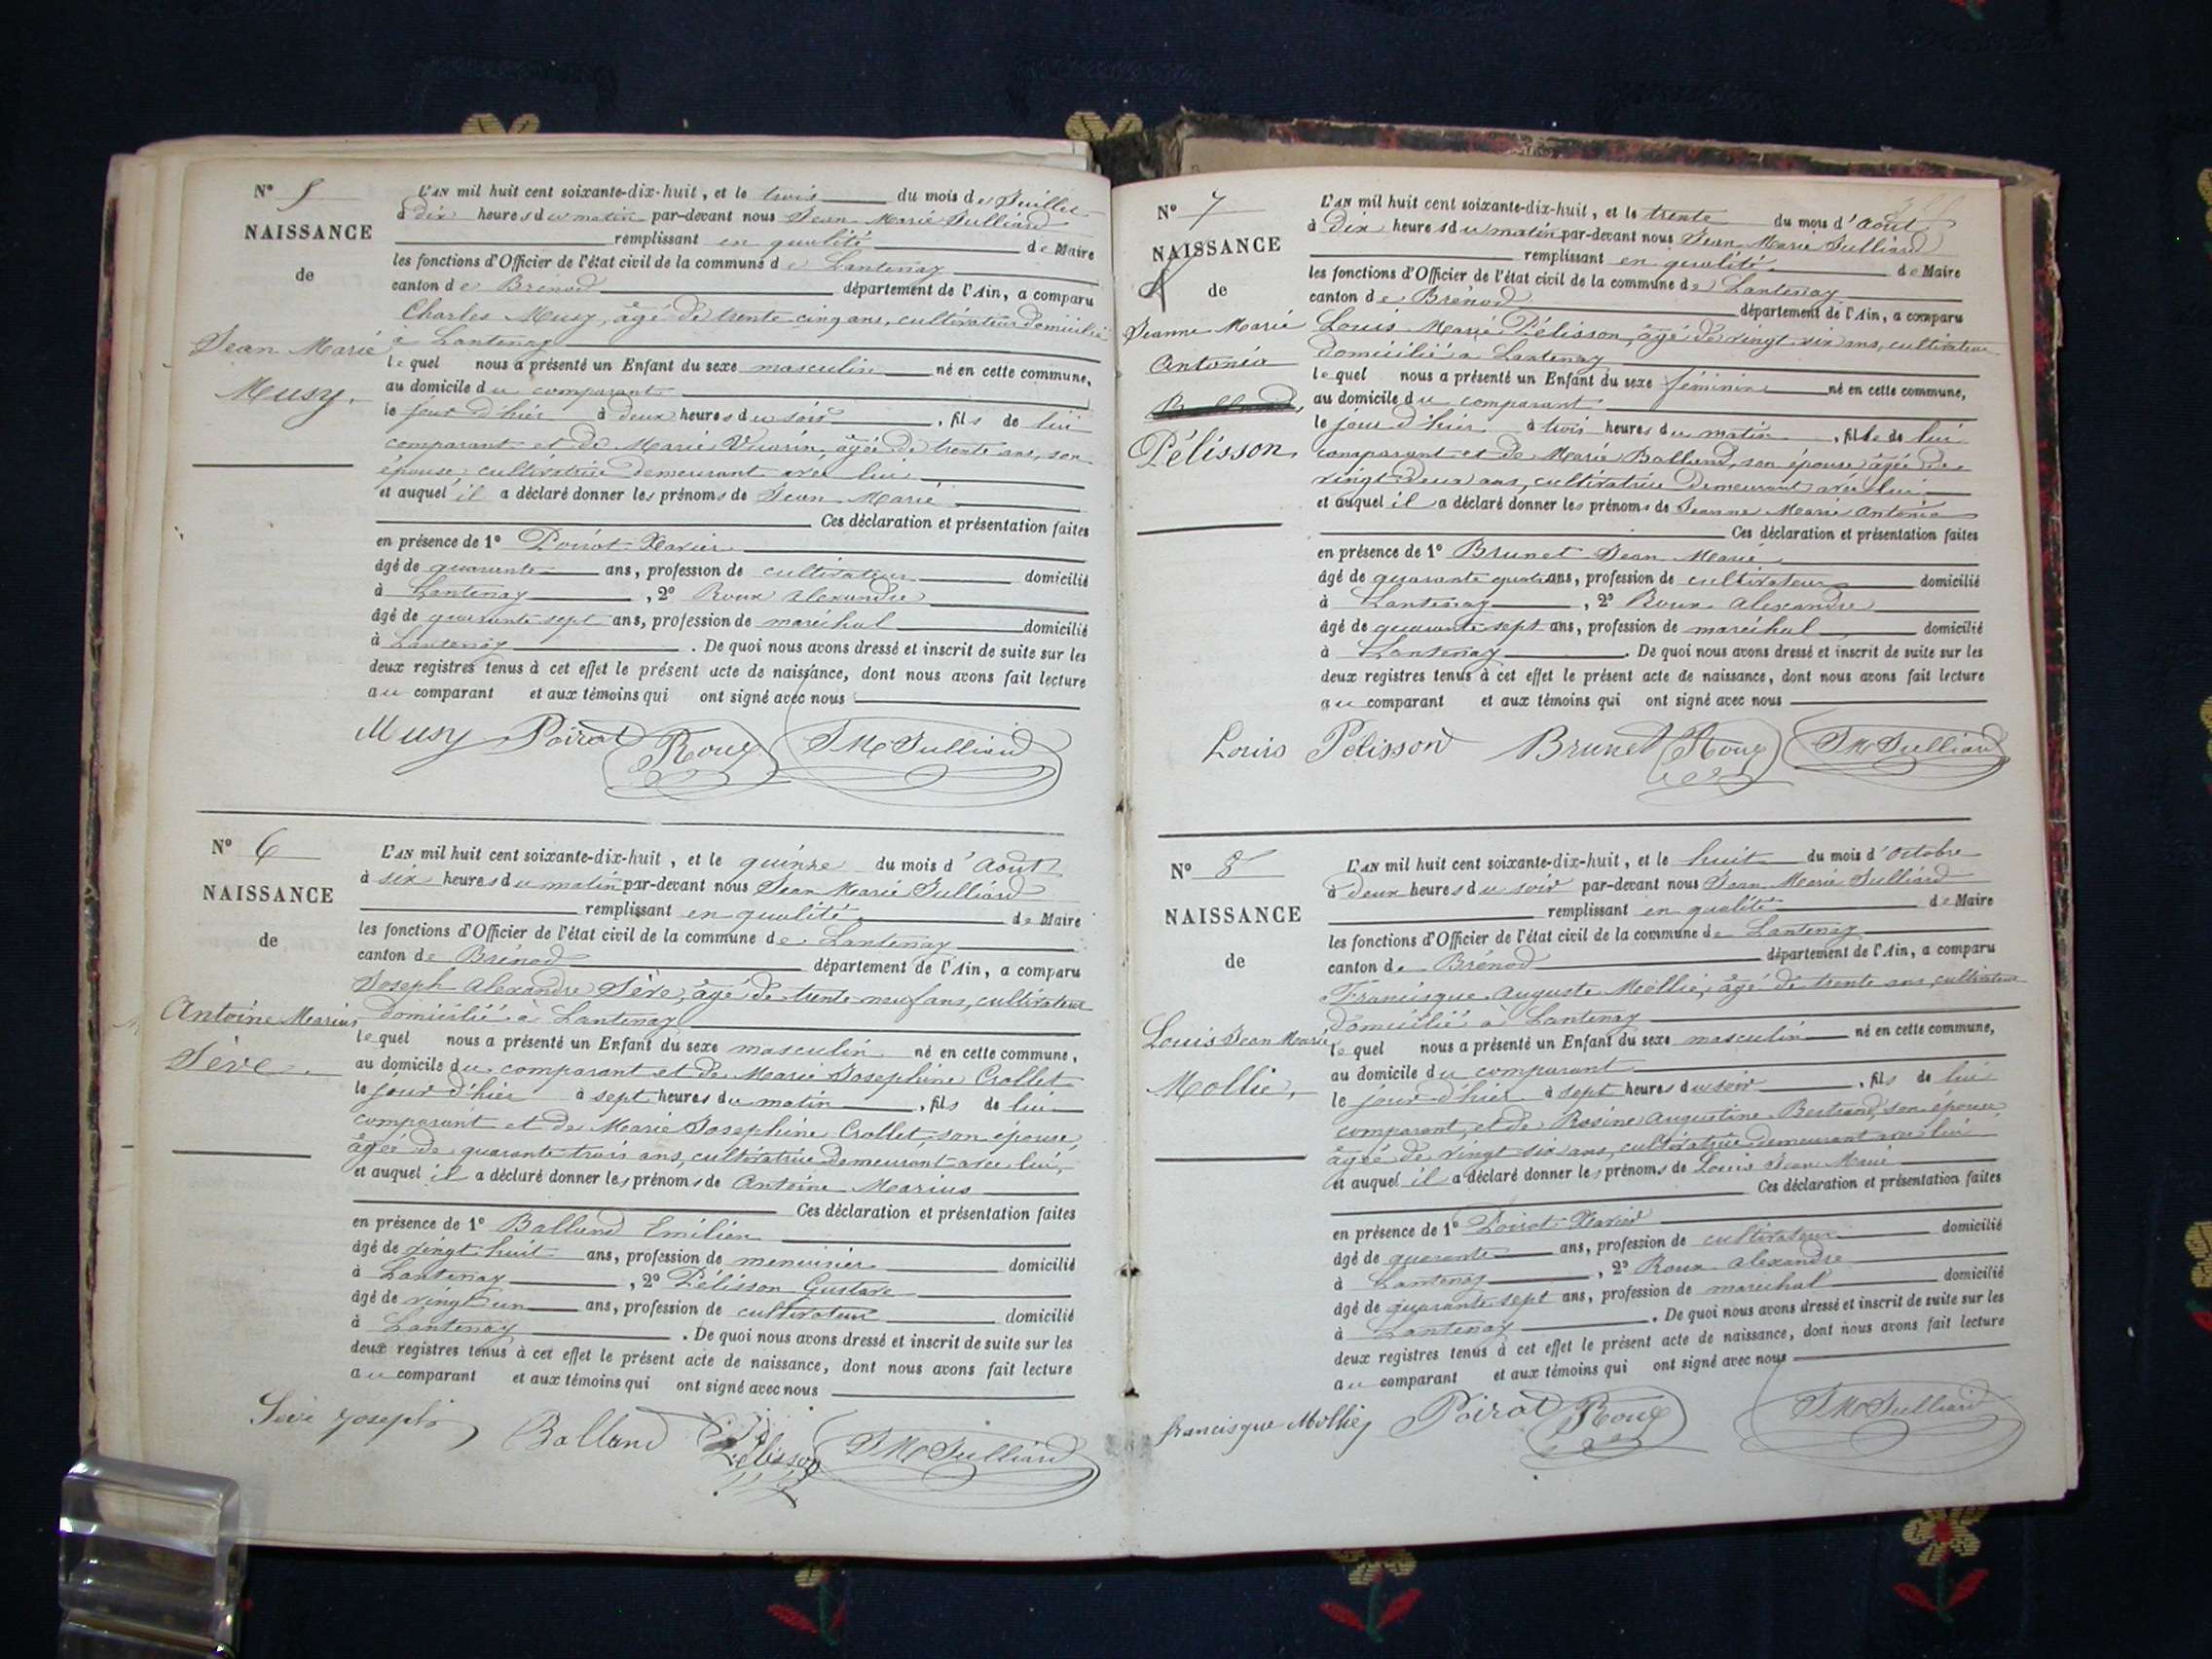 N° 5
NAISSANCE
de
Jean Marie
Musy.
L'AN mil huit cent soixante-dix-huit, et le trois du mois de Juillet
à dix heures du matin par-devant nous Jean Marie Julliard
remplissant en qualité de Maire
les fonctions d'Officier de l'état civil de la commune de Lantenay
canton de Brénod département de l'Ain, a comparu
Charles Musy, âgé de trente cinq ans, cultivateur domicilié
à Lantenay
lequel nous a présenté un Enfant du sexe masculin né en cette commune,
au domicile du comparant
le jour d'hier à deux heures du soir, fils de lui
comparant et de Marie Vuarin, âgée de trente ans, son
épouse cultivatrice demeurant avec lui
et auquel il a déclaré donner les prénoms de Jean Marie
Ces déclaration et présentation faites
en présence de 1° Poirot Xavier
âgé de quarante ans, profession de cultivateur domicilié
à Lantenay, 2° Roux Alexandre
âgé de quarante sept ans, profession de maréchal domicilié
à Lantenay. De quoi nous avons dressé et inscrit de suite sur les
deux registres tenus à cet effet le présent acte de naissance, dont nous avons fait lecture
au comparant et aux témoins qui ont signé avec nous
Musy Poirot Roux JM Julliard
N° 6
NAISSANCE
de
Antoine Marius
Sève.
L'AN mil huit cent soixante-dix-huit, et le quinze du mois d'Août
à six heures du matin par-devant nous Jean Marie Julliard
remplissant en qualité de Maire
les fonctions d'Officier de l'état civil de la commune de Lantenay
canton de Brénod département de l'Ain, a comparu
Joseph Alexandre Sève, âgé de trente neuf ans, cultivateur
domicilié à Lantenay
lequel nous a présenté un Enfant du sexe masculin né en cette commune,
au domicile du comparant et de Marie Josephine Crollet
le jour d'hier à sept heures du matin, fils de lui
comparant et de Marie Josephine Crollet, son épouse,
âgée de quarante trois ans, cultivatrice demeurant avec lui,
et auquel il a déclaré donner les prénoms de Antoine Marius
Ces déclaration et présentation faites
en présence de 1° Balland Emilien
âgé de vingt huit ans, profession de menuisier domicilié
à Lantenay, 2° Pélisson Gustave
âgé de vingt un ans, profession de cultivateur domicilié
à Lantenay. De quoi nous avons dressé et inscrit de suite sur les
deux registres tenus à cet effet le présent acte de naissance, dont nous avons fait lecture
au comparant et aux témoins qui ont signé avec nous
Sève Joseph Balland Pélisson JM Julliard
N° 7
NAISSANCE
de
Jeanne Marie
Antonia
Pélisson
L'AN mil huit cent soixante-dix-huit, et le trente du mois d'Août
à Dix heures du matin par-devant nous Jean Marie Julliard
remplissant en qualité de Maire
les fonctions d'Officier de l'état civil de la commune de Lantenay
canton de Brénod département de l'Ain, a comparu
Louis Marie Pélisson, âgé de vingt six ans, cultivateur
domicilié à Lantenay
lequel nous a présenté un Enfant du sexe féminin né en cette commune,
au domicile du comparant
le jour d'hier à trois heures du matin, fille de lui
comparant et de Marie Balland, son épouse âgée de
vingt deux ans, cultivatrice demeurant avec lui
et auquel il a déclaré donner les prénoms de Jeanne Marie Antonia
Ces déclaration et présentation faites
en présence de 1° Brunet Jean Marie
âgé de quarante quatre ans, profession de cultivateur domicilié
à Lantenay, 2° Roux Alexandre
âgé de quarante sept ans, profession de maréchal domicilié
à Lantenay. De quoi nous avons dressé et inscrit de suite sur les
deux registres tenus à cet effet le présent acte de naissance, dont nous avons fait lecture
au comparant et aux témoins qui ont signé avec nous
Louis Pelisson Brunet Roux JM Julliard
N° 8
NAISSANCE
de
Louis Jean Marie
Mollie,
L'AN mil huit cent soixante-dix-huit, et le huit du mois d'Octobre
à deux heures du soir par-devant nous Jean Marie Julliard
remplissant en qualité de Maire
les fonctions d'Officier de l'état civil de la commune de Lantenay
canton de Brénod département de l'Ain, a comparu
Francisque Auguste Mollie, âgé de trente ans, cultivateur
domicilié à Lantenay
lequel nous a présenté un Enfant du sexe masculin né en cette commune,
au domicile du comparant
le jour d'hier à sept heures du soir, fils de lui
comparant, et de Rosine Augustine Bertrand, son épouse,
âgée de vingt six ans, cultivatrice demeurant avec lui
et auquel il a déclaré donner les prénoms de Louis Jean Marie
Ces déclaration et présentation faites
en présence de 1° Poirot Xavier
âgé de quarante ans, profession de cultivateur domicilié
à Lantenay, 2° Roux Alexandre
âgé de quarante sept ans, profession de maréchal domicilié
à Lantenay. De quoi nous avons dressé et inscrit de suite sur les
deux registres tenus à cet effet le présent acte de naissance, dont nous avons fait lecture
au comparant et aux témoins qui ont signé avec nous
francisque Mollie Poirot Roux JM Julliard